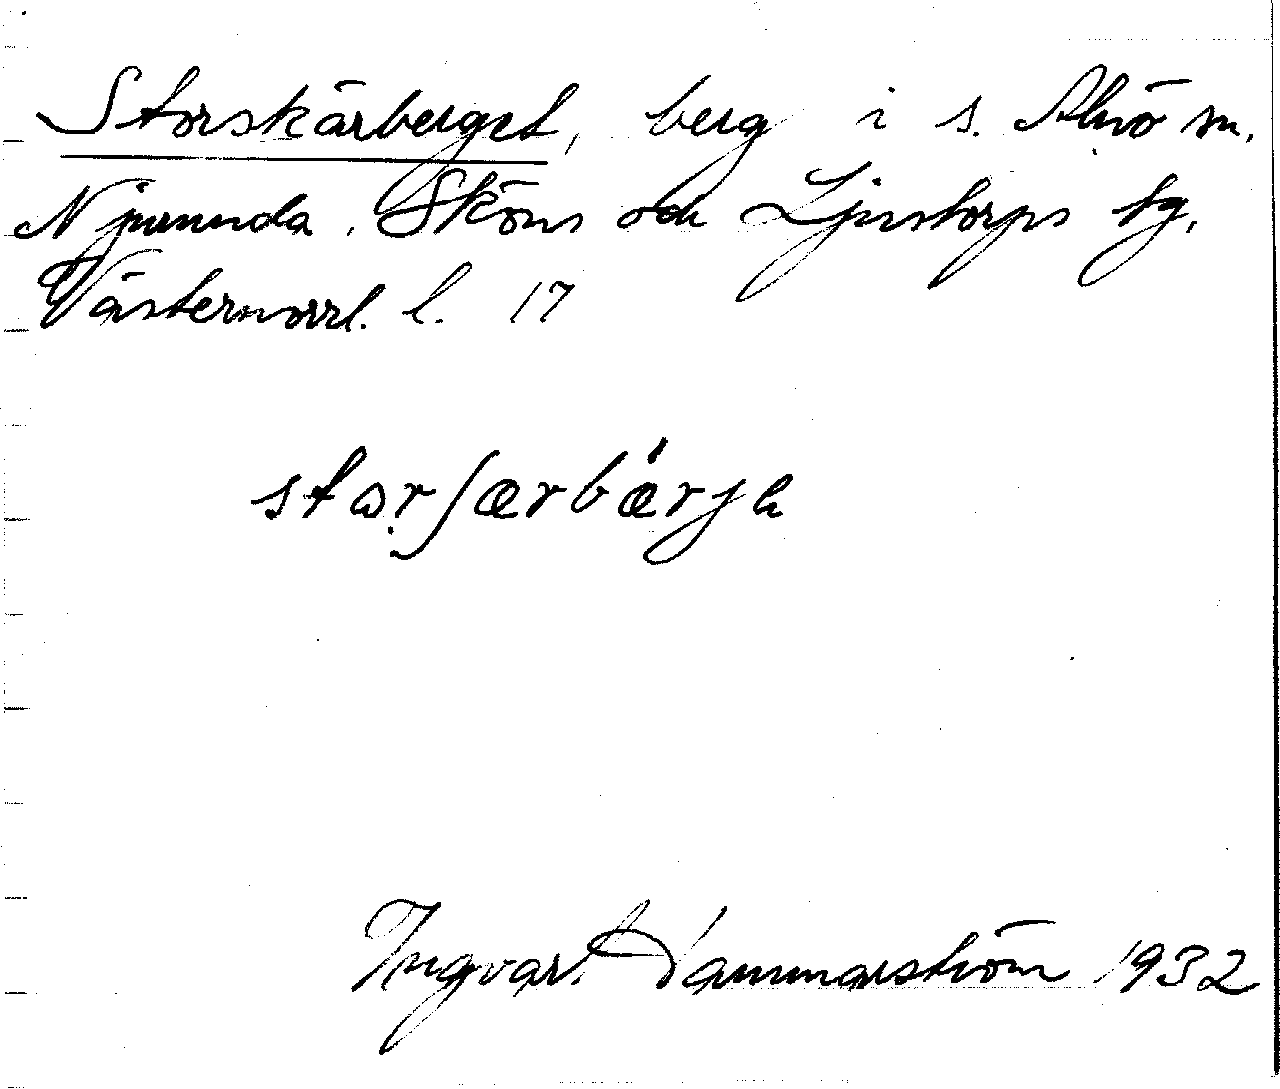 Storskärberget, berg i s. Alnö sn,
Njurunda, Sköns och Ljustorps tg,
Västernorrl. l. 17
storʃærbærja
Ingvar Dammarström 1932